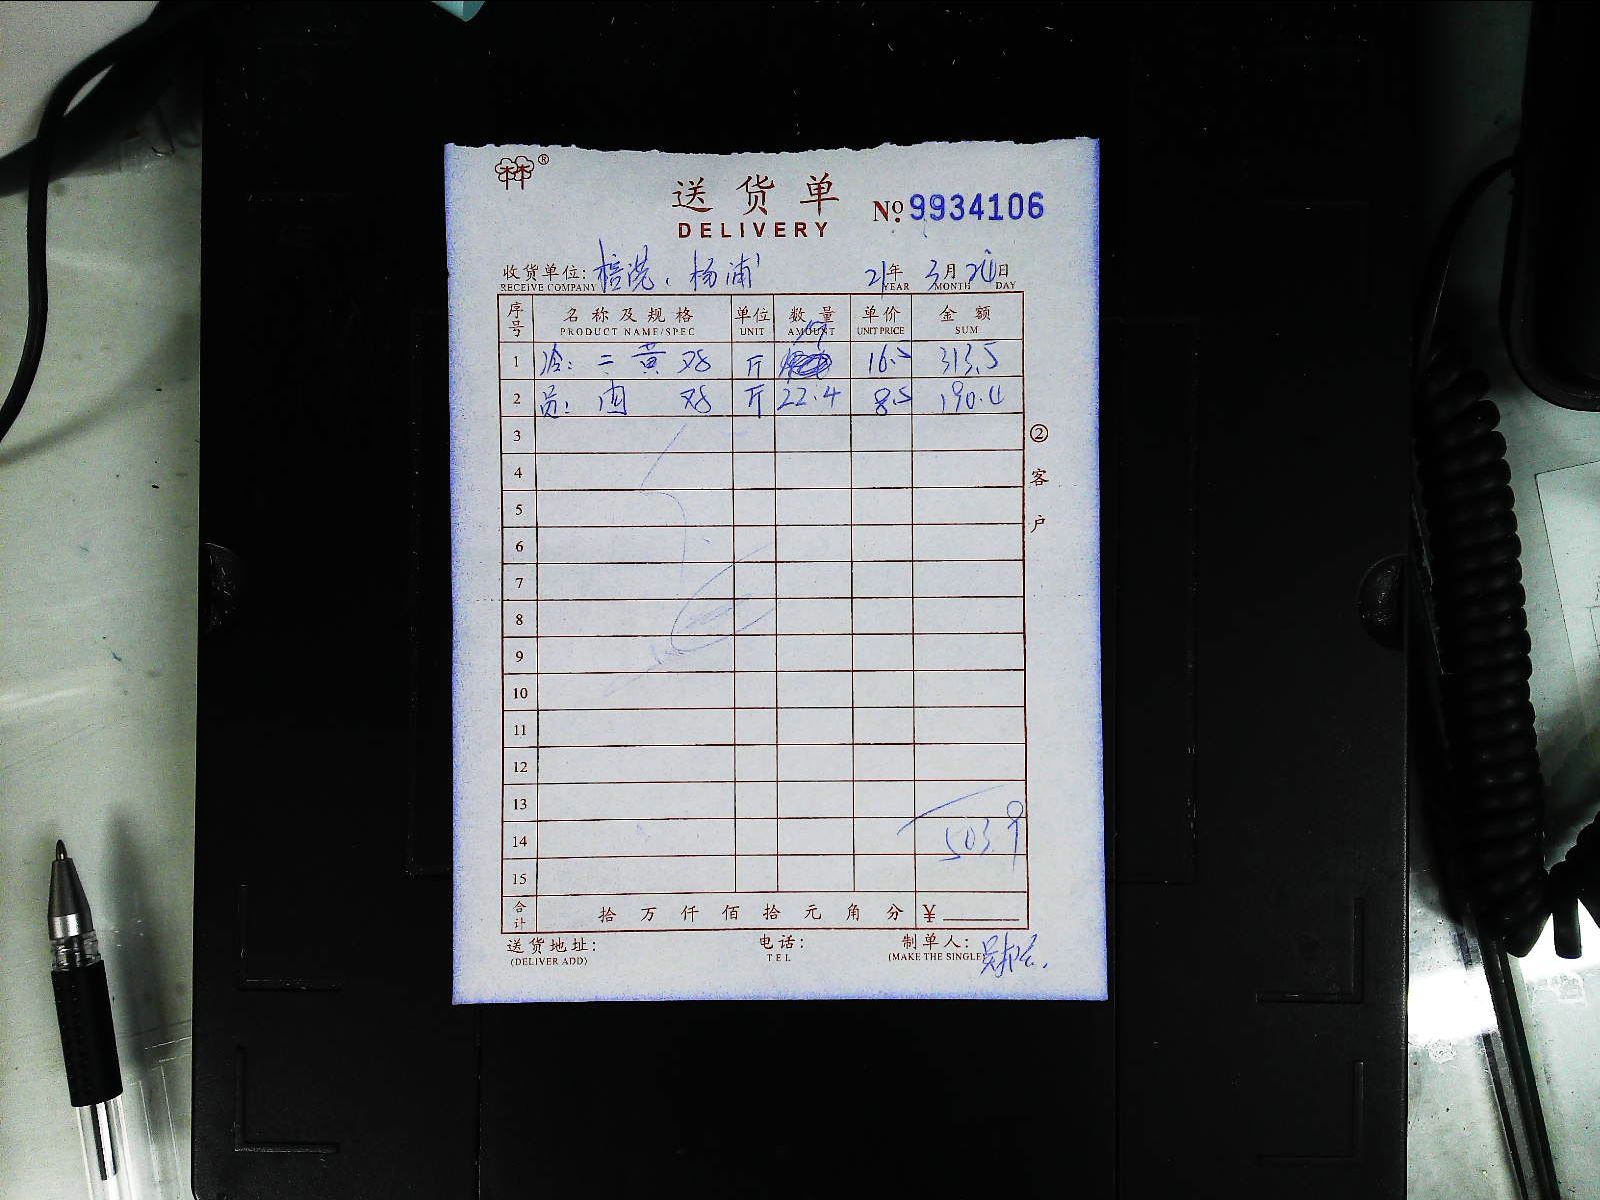 ®
送货单
DELIVERY
№ 9934106
收货单位: 杨浦
RECEIVE COMPANY
21年 3月 日
YEAR MONTH DAY
序号 名称及规格 单位 数量 单价 金额
PRODUCT NAME/SPEC UNIT AMOUNT UNIT PRICE SUM
19
1 冷: 三黄鸡 斤 16.5 313.5
2 员: 肉鸡 斤 22.4 8.5 190.4
3
②客户
4
5
6
7
8
9
10
11
12
13
14 503.9
15
合计 拾万仟佰拾元角分 ¥
送货地址: 电话: 制单人:
(DELIVER ADD) TEL (MAKE THE SINGLE)